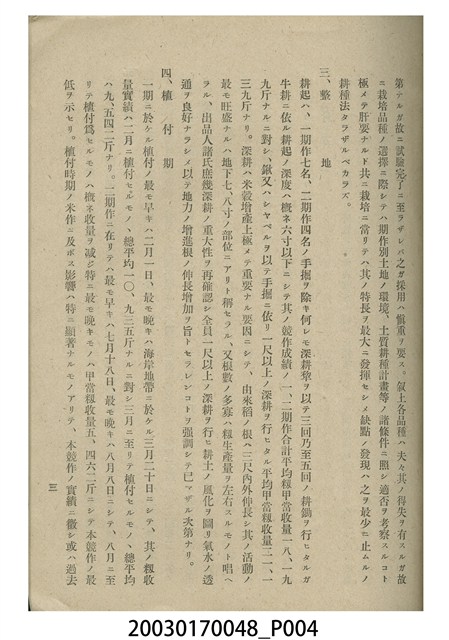 第テルガ故ニ試驗完了ニ至ラザレバ之ガ採用ハ愼重ヲ要ス、叙上各品種ハ夫々其ノ得失ヲ有スルガ故
ニ栽培品種ノ選擇ニ際シテハ期作別土地ノ環境、土質耕種計畫等ノ諸條件ニ照シ適否ヲ考察スルコト
極メテ肝要ナルト共ニ栽培ニ當リテハ其ノ特長ヲ最大ニ發揮セシメ缺點ノ發現ハ之ヲ最少ニ止ムルノ
耕種法タラザルベカラズ。
三、整地
耕起ハ、一期作七名、二期作四名ノ手掘ヲ除キ何レモ深耕犂ヲ以テ三回乃至五回ノ耕鋤ヲ行ヒタルガ
牛耕ニ依ル耕起ノ深度ハ概ネ六寸以下ニシテ其ノ競作成績ノ一、二期作合計平均糎甲當收量一八、一九
九斤ナルニ對シ、鍬又ハシヤベルヲ以テ手掘ニ依リ一尺以上ノ深耕ヲ行ヒタル平均甲當糎收量二二、一
三九斤ナリ。深耕ハ米穀增產上極メテ重要ナル要因ニシテ、由來稻ノ根ハ三尺內外伸長シ其ノ活動ノ
最モ旺盛ナルハ地下七、八寸ノ部位ニアリト稱セラル、又根數ノ多寡ハ糎生產量ヲ左右スルモノト唱ヘ
ラル、出品人諸氏庶幾深耕ノ重大性ヲ再確認シ全員一尺以上ノ深耕ヲ行ヒ耕土ノ風化ヲ圖リ氣水ノ透
通ヲ良好ナラシメ以テ地力ノ增進根ノ伸長增加ヲ旨トセラレンコトヲ强調シテ已マザル次第ナリ。
四、植付期
一期ニ於ケル植付ノ最モ早キハ二月一日、最モ晚キハ海岸地帶ニ於ケル三月二十日ニシテ、其ノ糎收
量實績ハ二月ニ植付セルモノ、總平均一〇、九三五斤ナルニ對シ三月ニ至リテ植付セルモノ、總平均
ハ九、五四二斤ナリ。二期作ニ在リテハ最モ早キハ七月十八日、最モ晚キハ八月八日ニシテ、八月ニ至
リテ植付爲セルモノハ概ネ收量ヲ減ジ特ニ最モ晚キモノハ甲當糎收量五、四六二斤ニシテ本競作ノ最
低ヲ示セリ。植付時期ノ米作ニ及ボス影響ハ特ニ顯著ナルモノアリテ、本競作ノ實績ニ徵シ或ハ過去
三
20030170048_P004